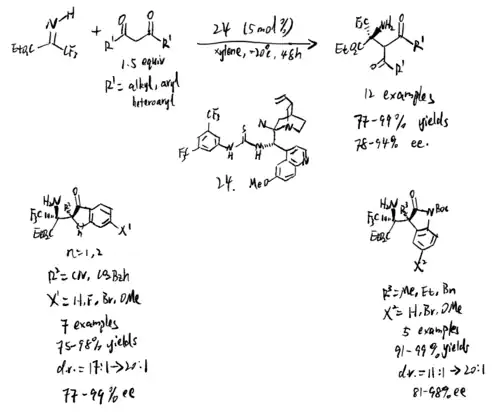 N H
EtO₂C CF₃
+
O O
R¹ R¹
1.5 equiv
R¹ = alkyl, aryl
heteroaryl
24 (5 mol%)
xylene, -20°C, 48h
F₃C NH₂
EtO₂C
O
R¹
O R¹
12 examples
77-99% yields
78-94% ee.
CF₃
F₃C
N H
S
N H
N
N
MeO
24.
H₂N
F₃C
EtO₂C
R³
O
n
X¹
n=1,2
R³ = CN, CO₂Bzh
X¹ = H, F, Br, OMe
7 examples
75-98% yields
d.r. = 17:1 → 20:1
77-99% ee
H₂N
F₃C
EtO₂C
R³
O
NBoc
X²
R³ = Me, Et, Bn
X² = H, Br, OMe
5 examples
91-99% yields
d.r. = 11:1 → 20:1
81-98% ee